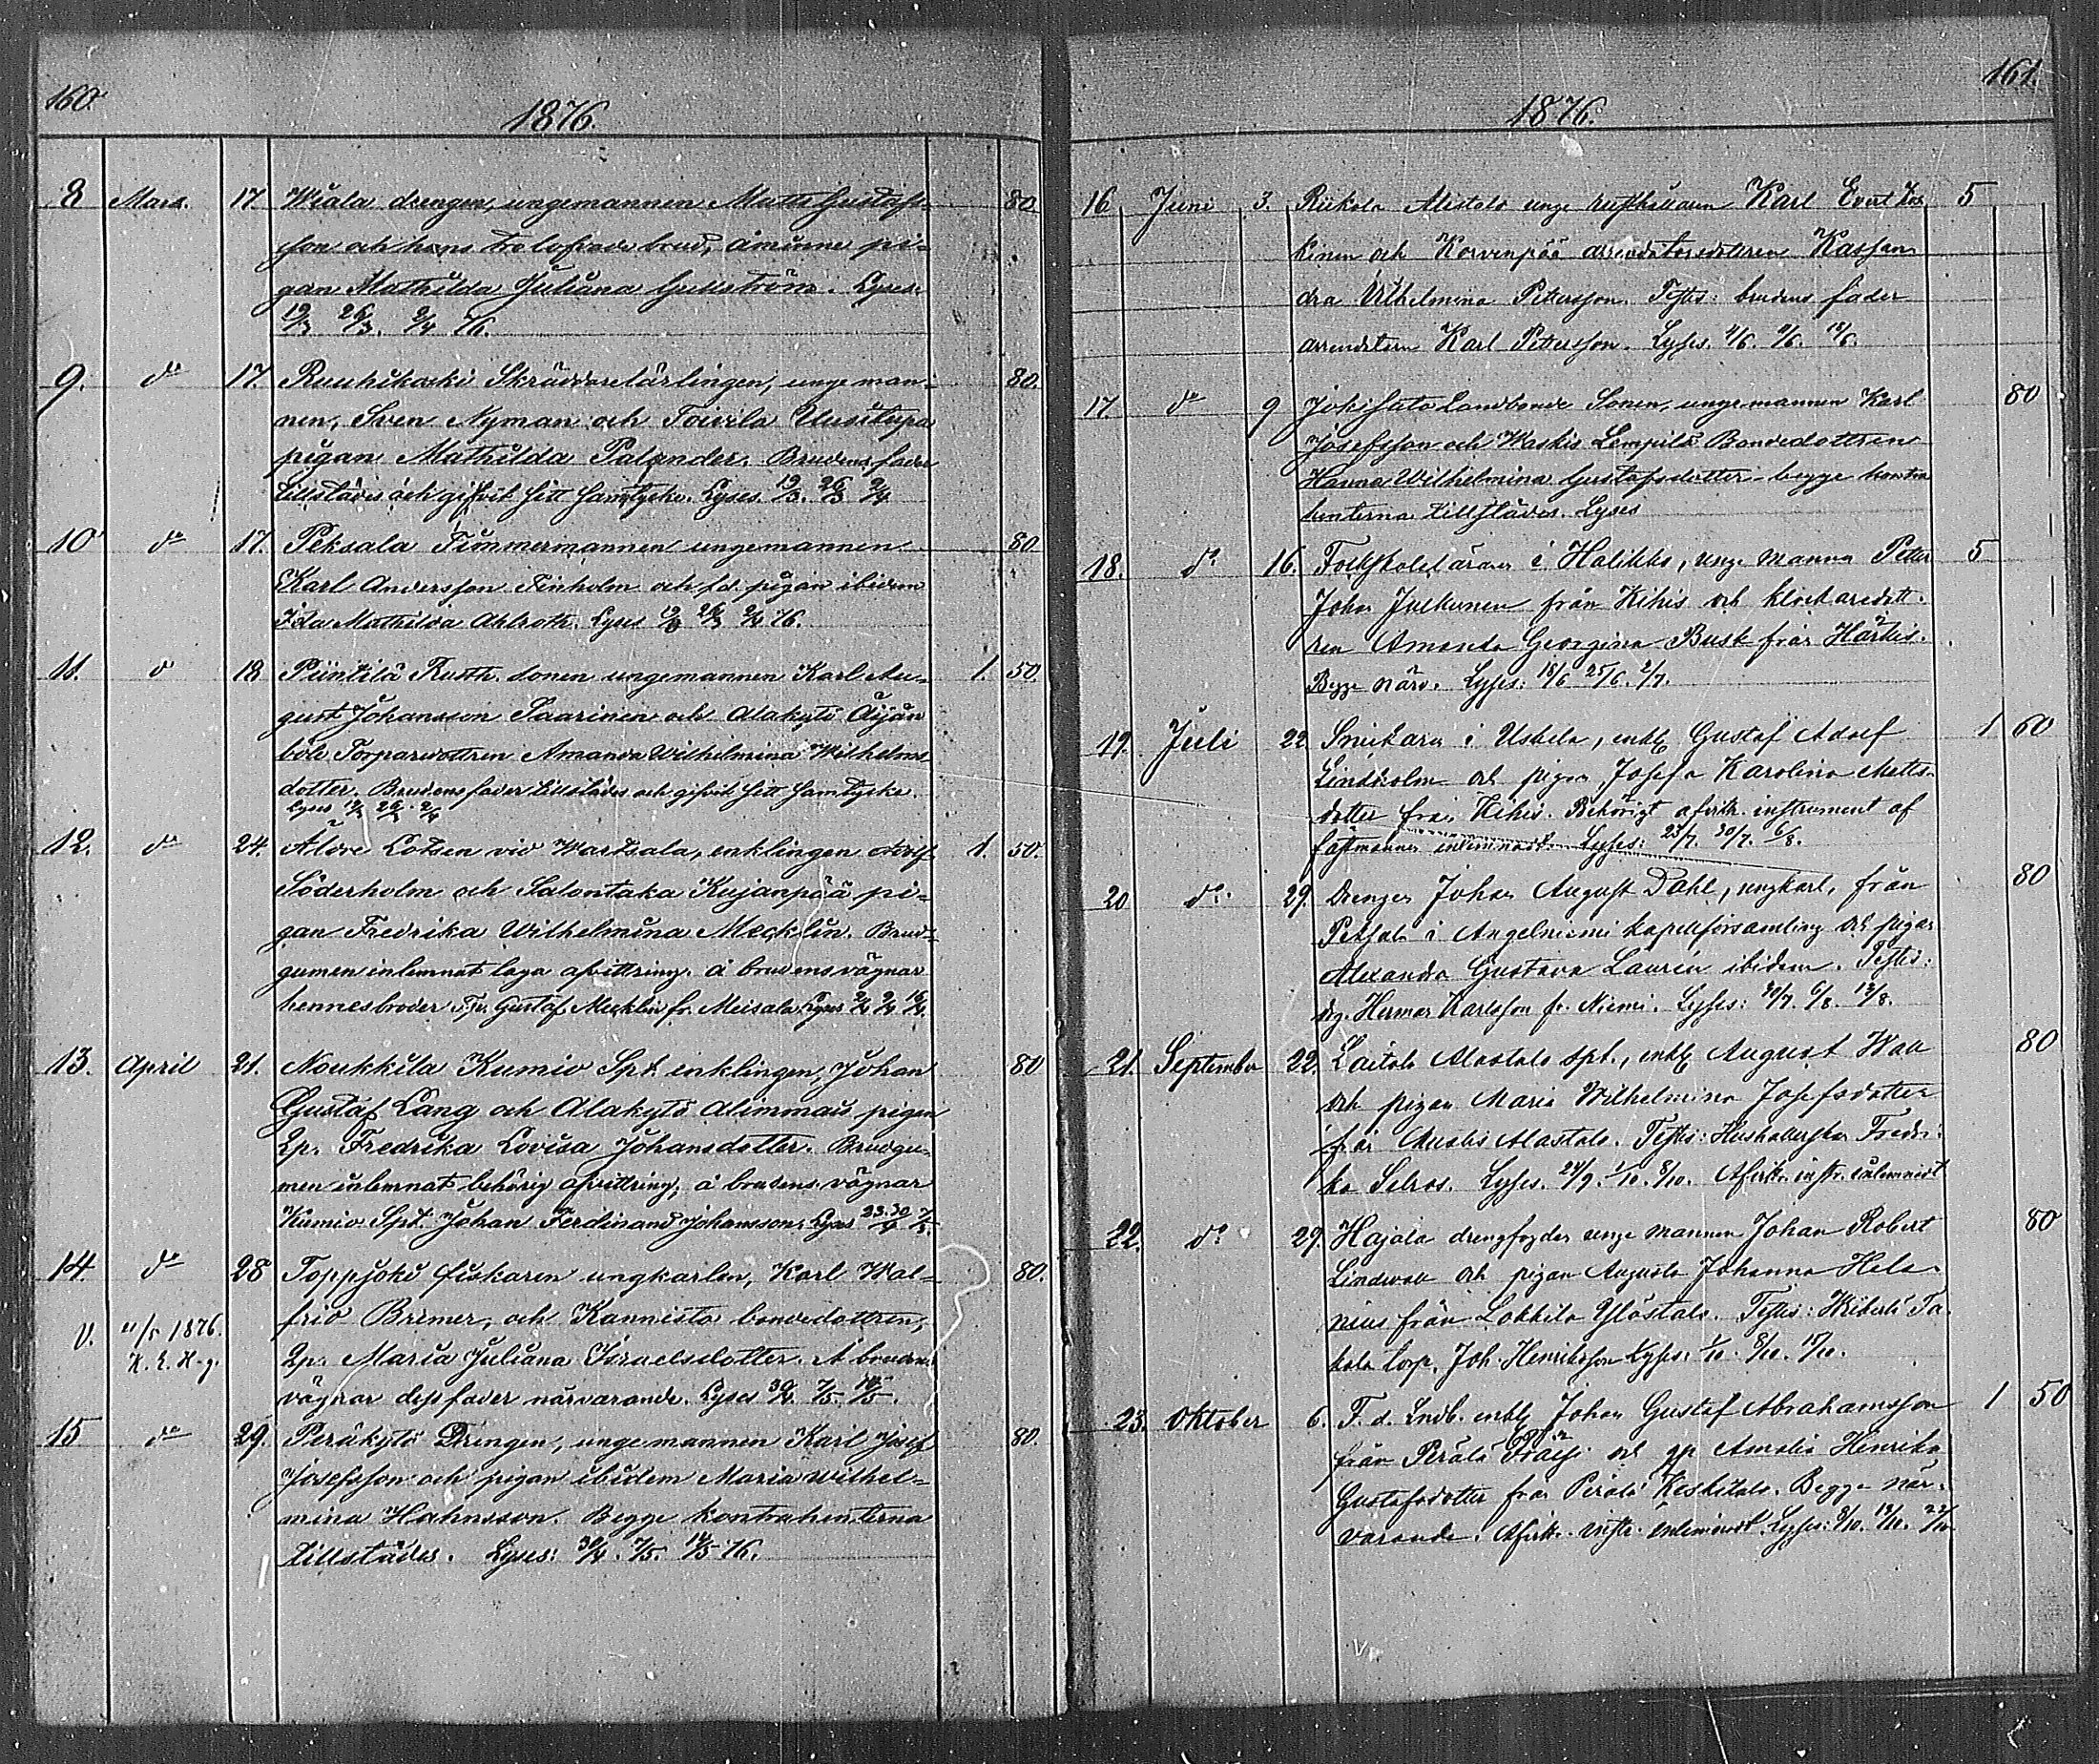 160.
1876.
8 Mars. 17 Wiala drengen, ungemannen Matts Gustafs-
son och hans trolofvade brud, Åminne pi-
gan Mathilda Juliana . Lyses.
19/3 26/3. 2/4 76.
80
9. do 17. Ruuhikoski Skräddarelärlingen, unge man-
nen, Sven Nyman och Toivila Uusitupa
pigan Mathilda Palander. Brudens fader
tillstädes och gifvit sitt samtycke. Lyses 19/3. 26/3 2/4
80.
10 do 17. Peksala Timmermannen ungemannen
Karl Andersson Finholm och f.d. pigan ibidem
Ida Mathilda Ahlroth. Lyses 19/3 26/3 2/4 76.
80
11. do 18 Piintilä Rusth. sonen ungemannen Karl Au-
gust Johansson Saarinen och Alakytö Äijän
böle Torparedottren Amanda Wilhelmina Wilhelms-
dotter. Brudens fader tillstädes och gifvit sitt samtycke.
Lyses 19/3 26/3. 2/4
1. 50.
12. do 24. Äldre Lotsen vid Wartsala, enklingen Adolf
Söderholm och Salontaka Kujanpää pi-
gan Fredrika Wilhelmina Mecklin. Brud-
gumen inlemnat laga afvittring. å brudens vägnar
hennes broder Gustaf Mecklin fr. Meisala Lyses 2/4 9/4 16/4.
1. 50.
13. April 21. Noukkila Kumio Spt. enklingen, Johan
Gustaf Lång och Alakytö Alimmais pigan
Qp. Fredrika Lovisa Johansdotter. Brudgu-
men inlemnat behörig afvittring, å brudens vägnar
Kumio Spt. Johan Ferdinand Johansson. Lyses 23. 30/4 7/5.
80
14. do 28 Toppjoki fiskaren ungkarlen, Karl Wal-
frid Bremer, och Kannisto bondedottren,
Qp. Maria Juliana Israelsdotter. Å brudens
vägnar dess fader närvarande. Lyses 30/4. 7/5. 14/5.
80.
V. 21/5 1876.
K. E. H-g.
15 do 29. Peräkytö Drengen, ungemannen Karl Josef
Josefsson och pigan ibidem Maria Wilhel-
mina Hahnsson. Begge kontrahenterna
tillstädes. Lyses: 30/4. 7/5. 14/5 76.
80.
161.
1876.
16 Juni 3. Rikala Alistalo unge rusthållaren Karl Evert
kinen och Korvenpää arrendatorsdottren Kassan-
dra Wilhelmina Pettersson. Testis: brudens fader
arrendatorn Karl Pettersson. Lyses. 4/6. 11/6. 18/6.
5
17. do 9 Jokisato Landbonde Sonen, ungemannen Karl
Josefsson och Waskis Lempilä Bondedottren
Hanna Wilhelmina Gustafsdotter begge kontra
henterna tillstädes. Lyses
80
18. do 16. Folkskoleläraren i Halikko, unge mannen Petter
Johan Julkunen från Kihis och klockaredott-
ren Amanda Georgina Busk från .
Begge närv. Lyses: 18/6 25/6. 2/7.
5
19. Juli 22 Snickaren i Uskela, enkl. Gustaf Adolf
Lindholm och pigan Josefa Karolina Matts-
dotter från Kihis. Behörigt afvittr. instrument af
fästmannen inlemnadt. Lyses: 23/7. 30/7. 6/8.
1 60
20 do. 29. Drengen Johan August Dahl, ungkarl, från
Peksala i Angelniemi kapellförsamling och pigan
Alexandra Gustava Laurén ibidem. Testis:
drg. Herman Karlsson fr. Niemi. Lyses: 30/7. 6/8. 13/8.
80
21. September 22. Laitala Alastalo spt., enkl. August Wall
och pigan Maria Wilhelmina Josefsdotter
från Alastalo. Testis: Hushållerskan Fredri-
ka Selros. Lyses. 24/9. 1/10. 8/10. Afvittr. instr. inlemnadt
80
22. do 29. Hajala drengfogden unge mannen Johan Robert
Lindwall och pigan Augusta Johanna Hele-
nius från Lokkila Ylöstalo. Testis: Ta-
kala torp. Joh. Henriksson Lyses: 1/10. 8/10. 15/10.
80
23. Oktober 6. F. d. Lndb. enkl. Johan Gustaf Abrahamsson
från Perälä och qp Amalia Henrika
Gustafsdotter från Perälä Keskitalo. Begge när-
varande. Afvittr. instr. inlemnadt. Lyses: 8/10. 15/10. 22/10
1 50